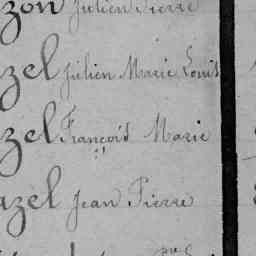 zon Julien Pierre
zel Julien Marie Louis
zel François Marie
azel Jean Pierre